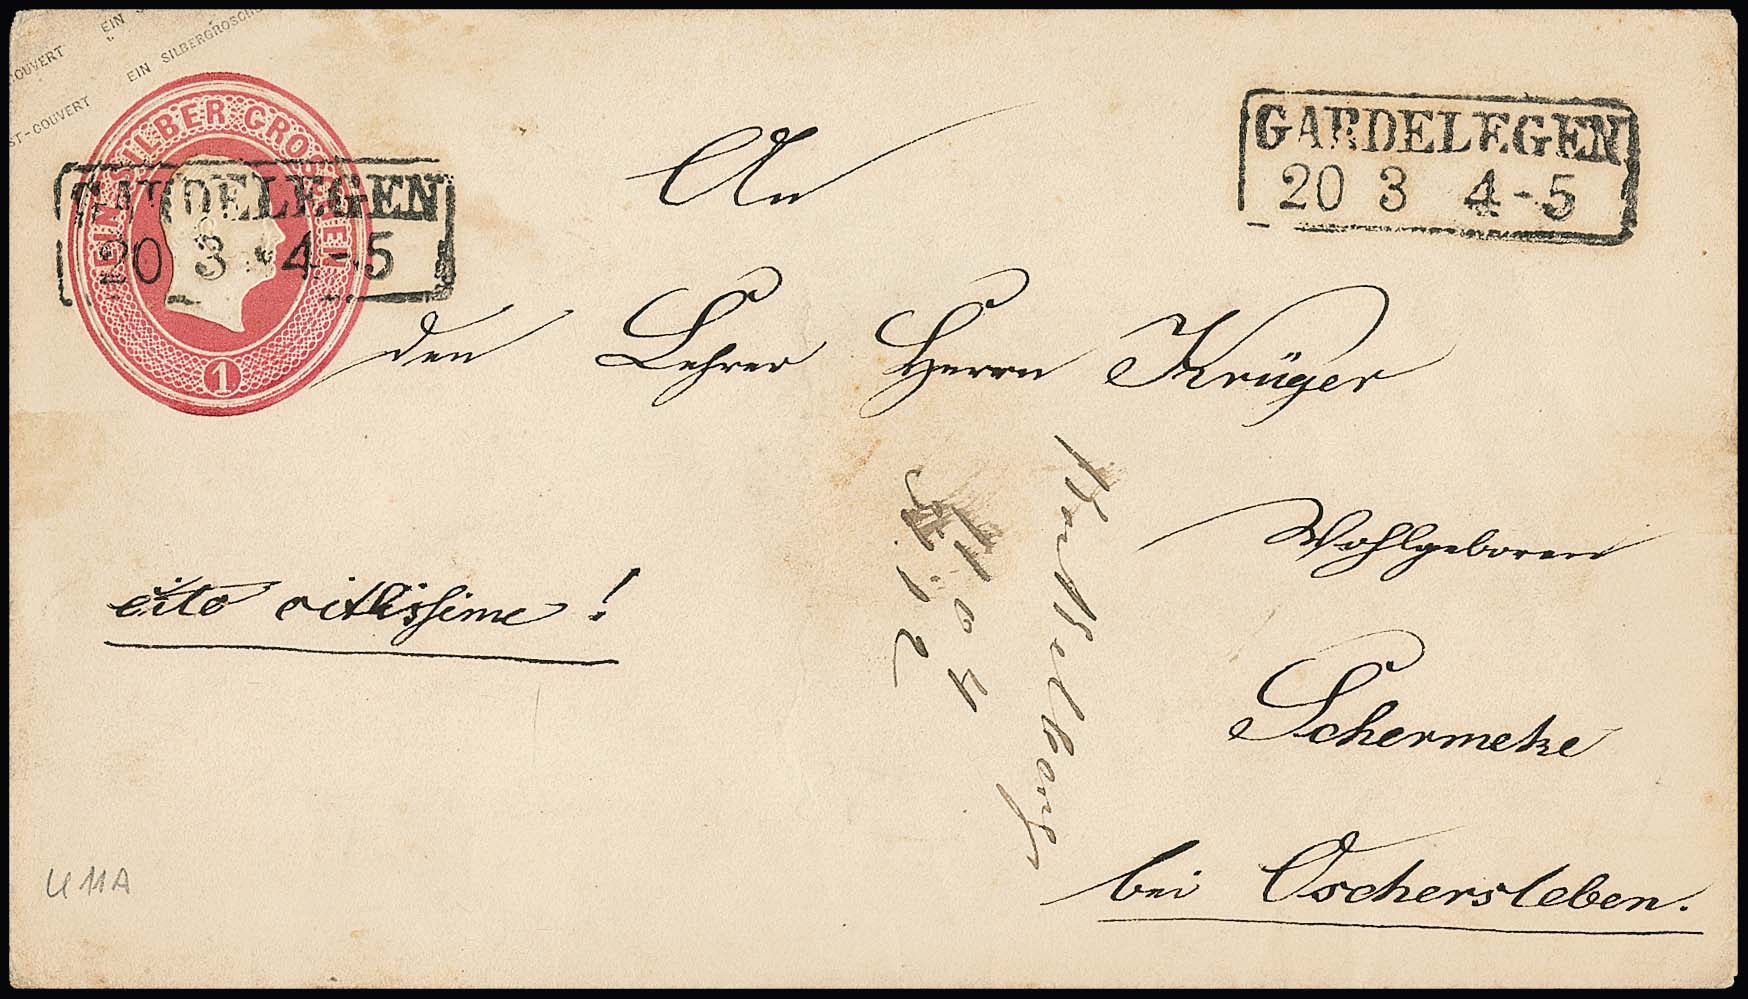 EIN S
OUVERT EIN SILBERGROSCH
ST-COUVERT
EIN SILBER GROSCHEN
1
GARDELEGEN
20 3 4-5
GARDELEGEN
20 3 4-5
An
den Lehrer Herrn Krüger
Wohlgeboren
cito citissime!
Schermcke
bei Oschersleben.
U 11A